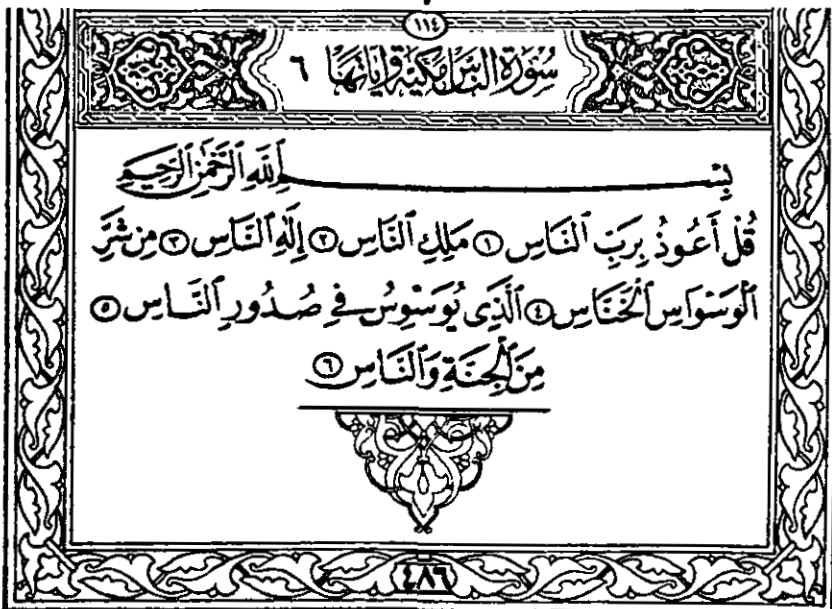 ١١٤
سُورَةُ النَّاسِ مَكِّيَّة وَآيَاتُهَا ٦
بِسْمِ ٱللَّهِ ٱلرَّحْمَٰنِ ٱلرَّحِيمِ
قُلْ أَعُوذُ بِرَبِّ ٱلنَّاسِ ١ مَلِكِ ٱلنَّاسِ ٢ إِلَٰهِ ٱلنَّاسِ ٣ مِن شَرِّ
ٱلْوَسْوَاسِ ٱلْخَنَّاسِ ٤ ٱلَّذِى يُوَسْوِسُ فِى صُدُورِ ٱلنَّاسِ ٥
مِنَ ٱلْجِنَّةِ وَٱلنَّاسِ ٦
٤٨٦